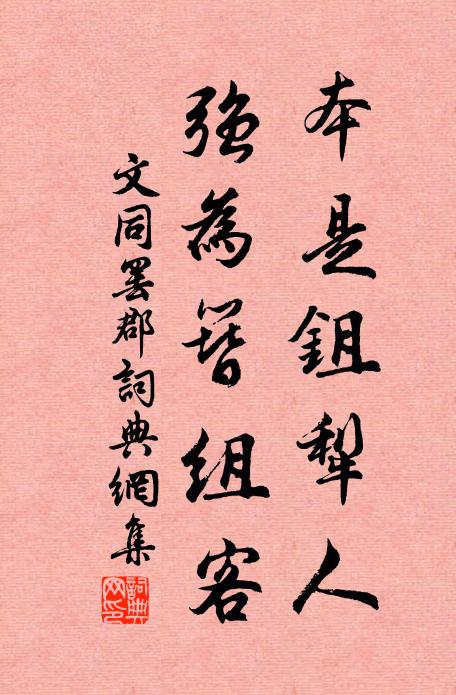 本是鉏犁人
強為簪組客
文同罷郡詞典網集
詞典网印